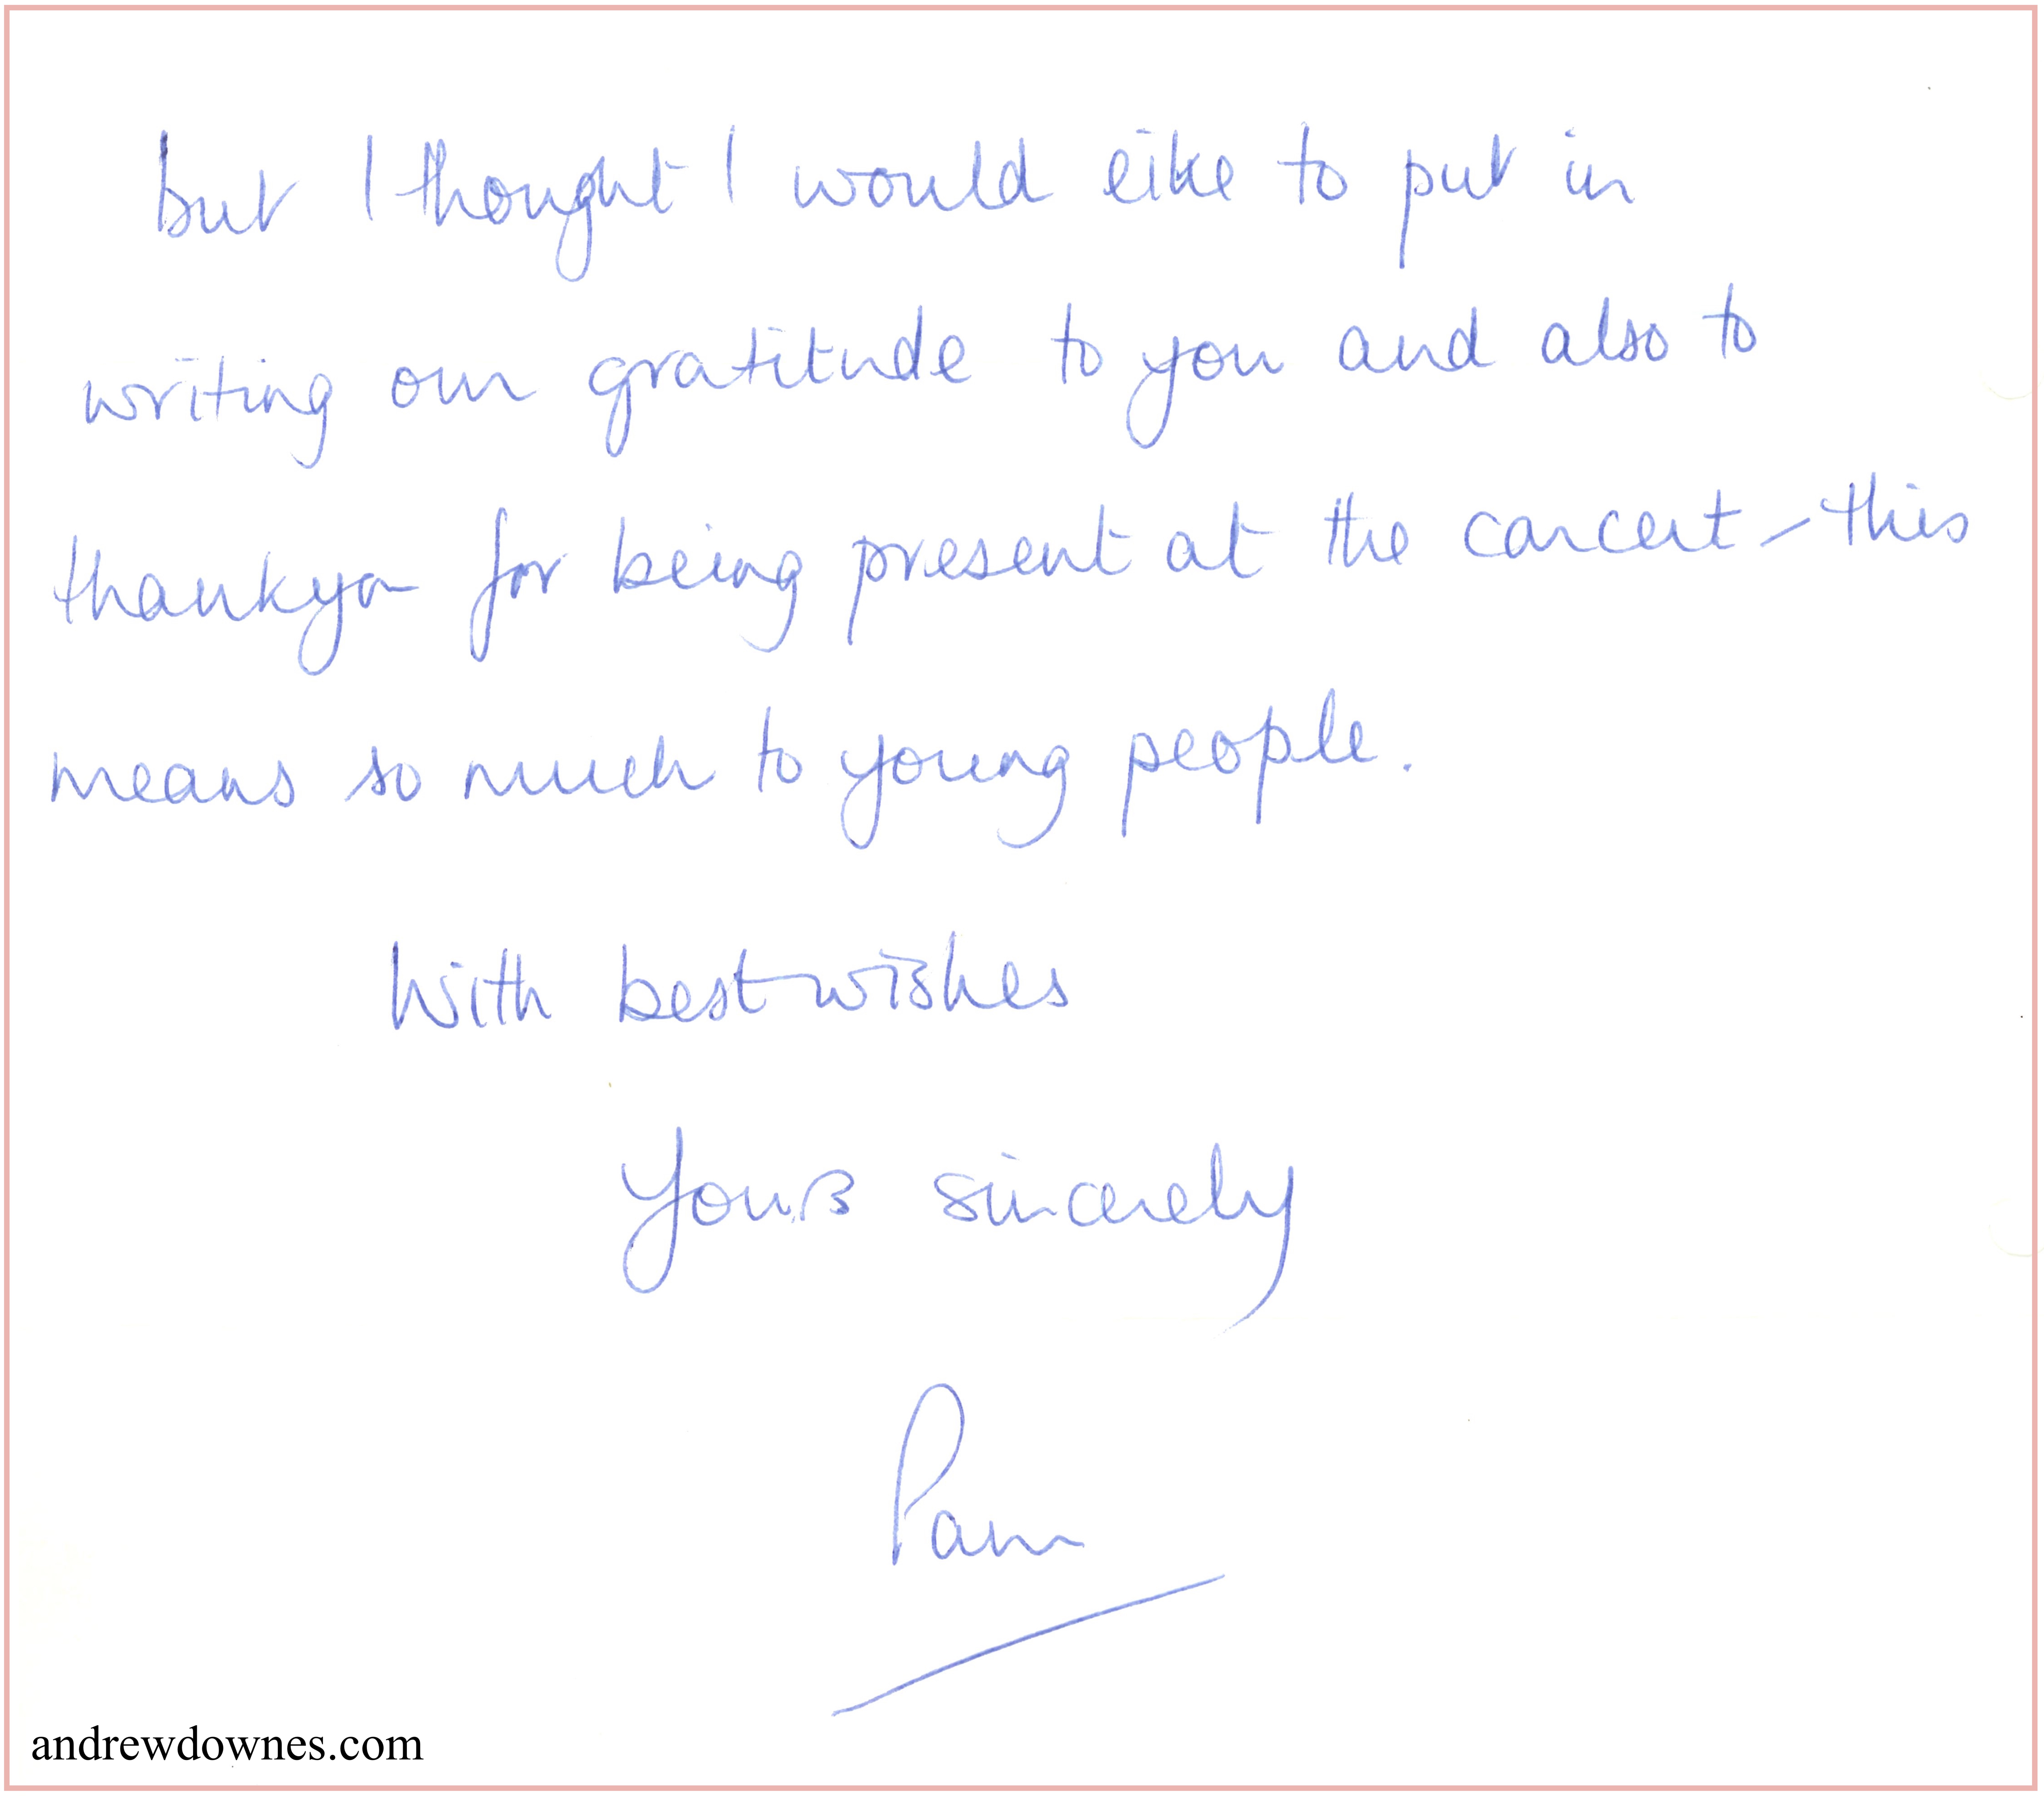 but I thought I would like to put in
writing our gratitude to you and also to
thankyou for being present at the concert – this
means so much to young people.
With best wishes
Yours sincerely
Pam
andrewdownes.com